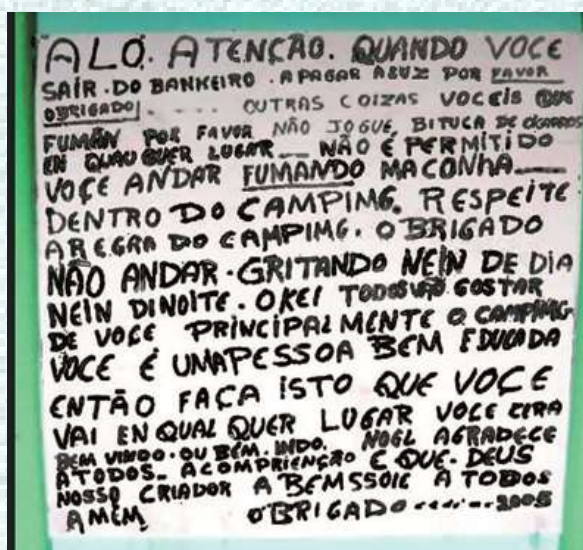 ALO. ATENÇÃO. QUANDO VOCE
SAIR. DO BANHEIRO. APAGAR ALUZ POR FAVOR
OBRIGADO! - . . . OUTRAS COIZAS VOCÊIS QUE
FUMÃN POR FAVOR NÃO JOGUE, BITUCA DE
EN QUAU QUER LUGAR __ NÃO É PERMITIDO
VOÇE ANDAR FUMANDO MACONHA __
DENTRO DO CAMPING. RESPEITE
AREGRA DO CAMPING. OBRIGADO
NÃO ANDAR. GRITANDO NEIN DE DIA
NEIN DINOITE. OKEI TODOS VÃO GOSTAR
DE VOCE PRINCIPALMENTE O CAMPING
VOCE É UMAPESSOA BEM EDUCADA
ENTÃO FAÇA ISTO QUE VOCE
VAI EN QUAL QUER LUGAR VOCE CERA
BEM VINDO. OU BEM. INDO. NOEL AGRADECE
ATODOS_ ACOMPRIENÇÃO E QUE. DEUS
NOSSO CRIADOR ABEMSSOIE A TODOS
AMÉM, OBRIGADO 2005